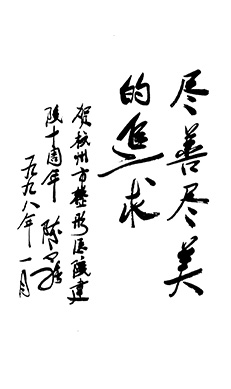 尽善尽美
的追求
贺杭州市整形医院建
院十周年 陈
一九九八年一月